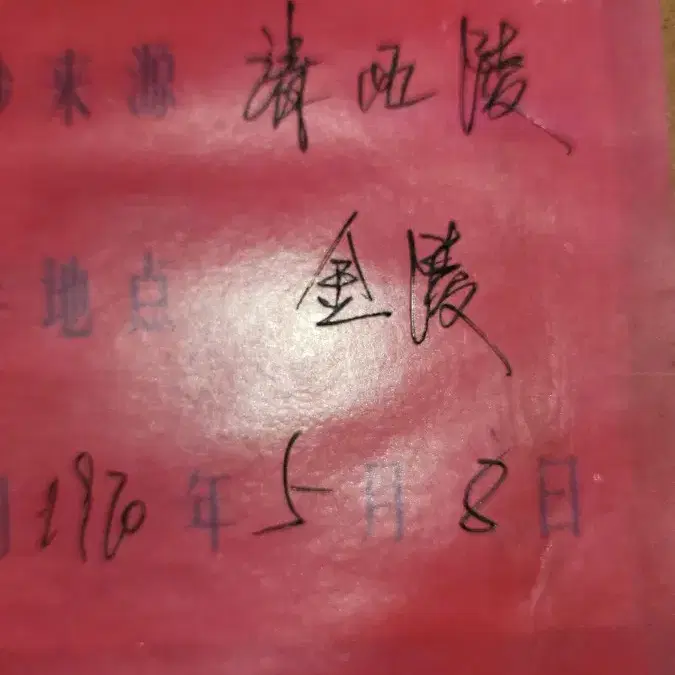 来源 清西陵
地点 金陵
1970年5月8日